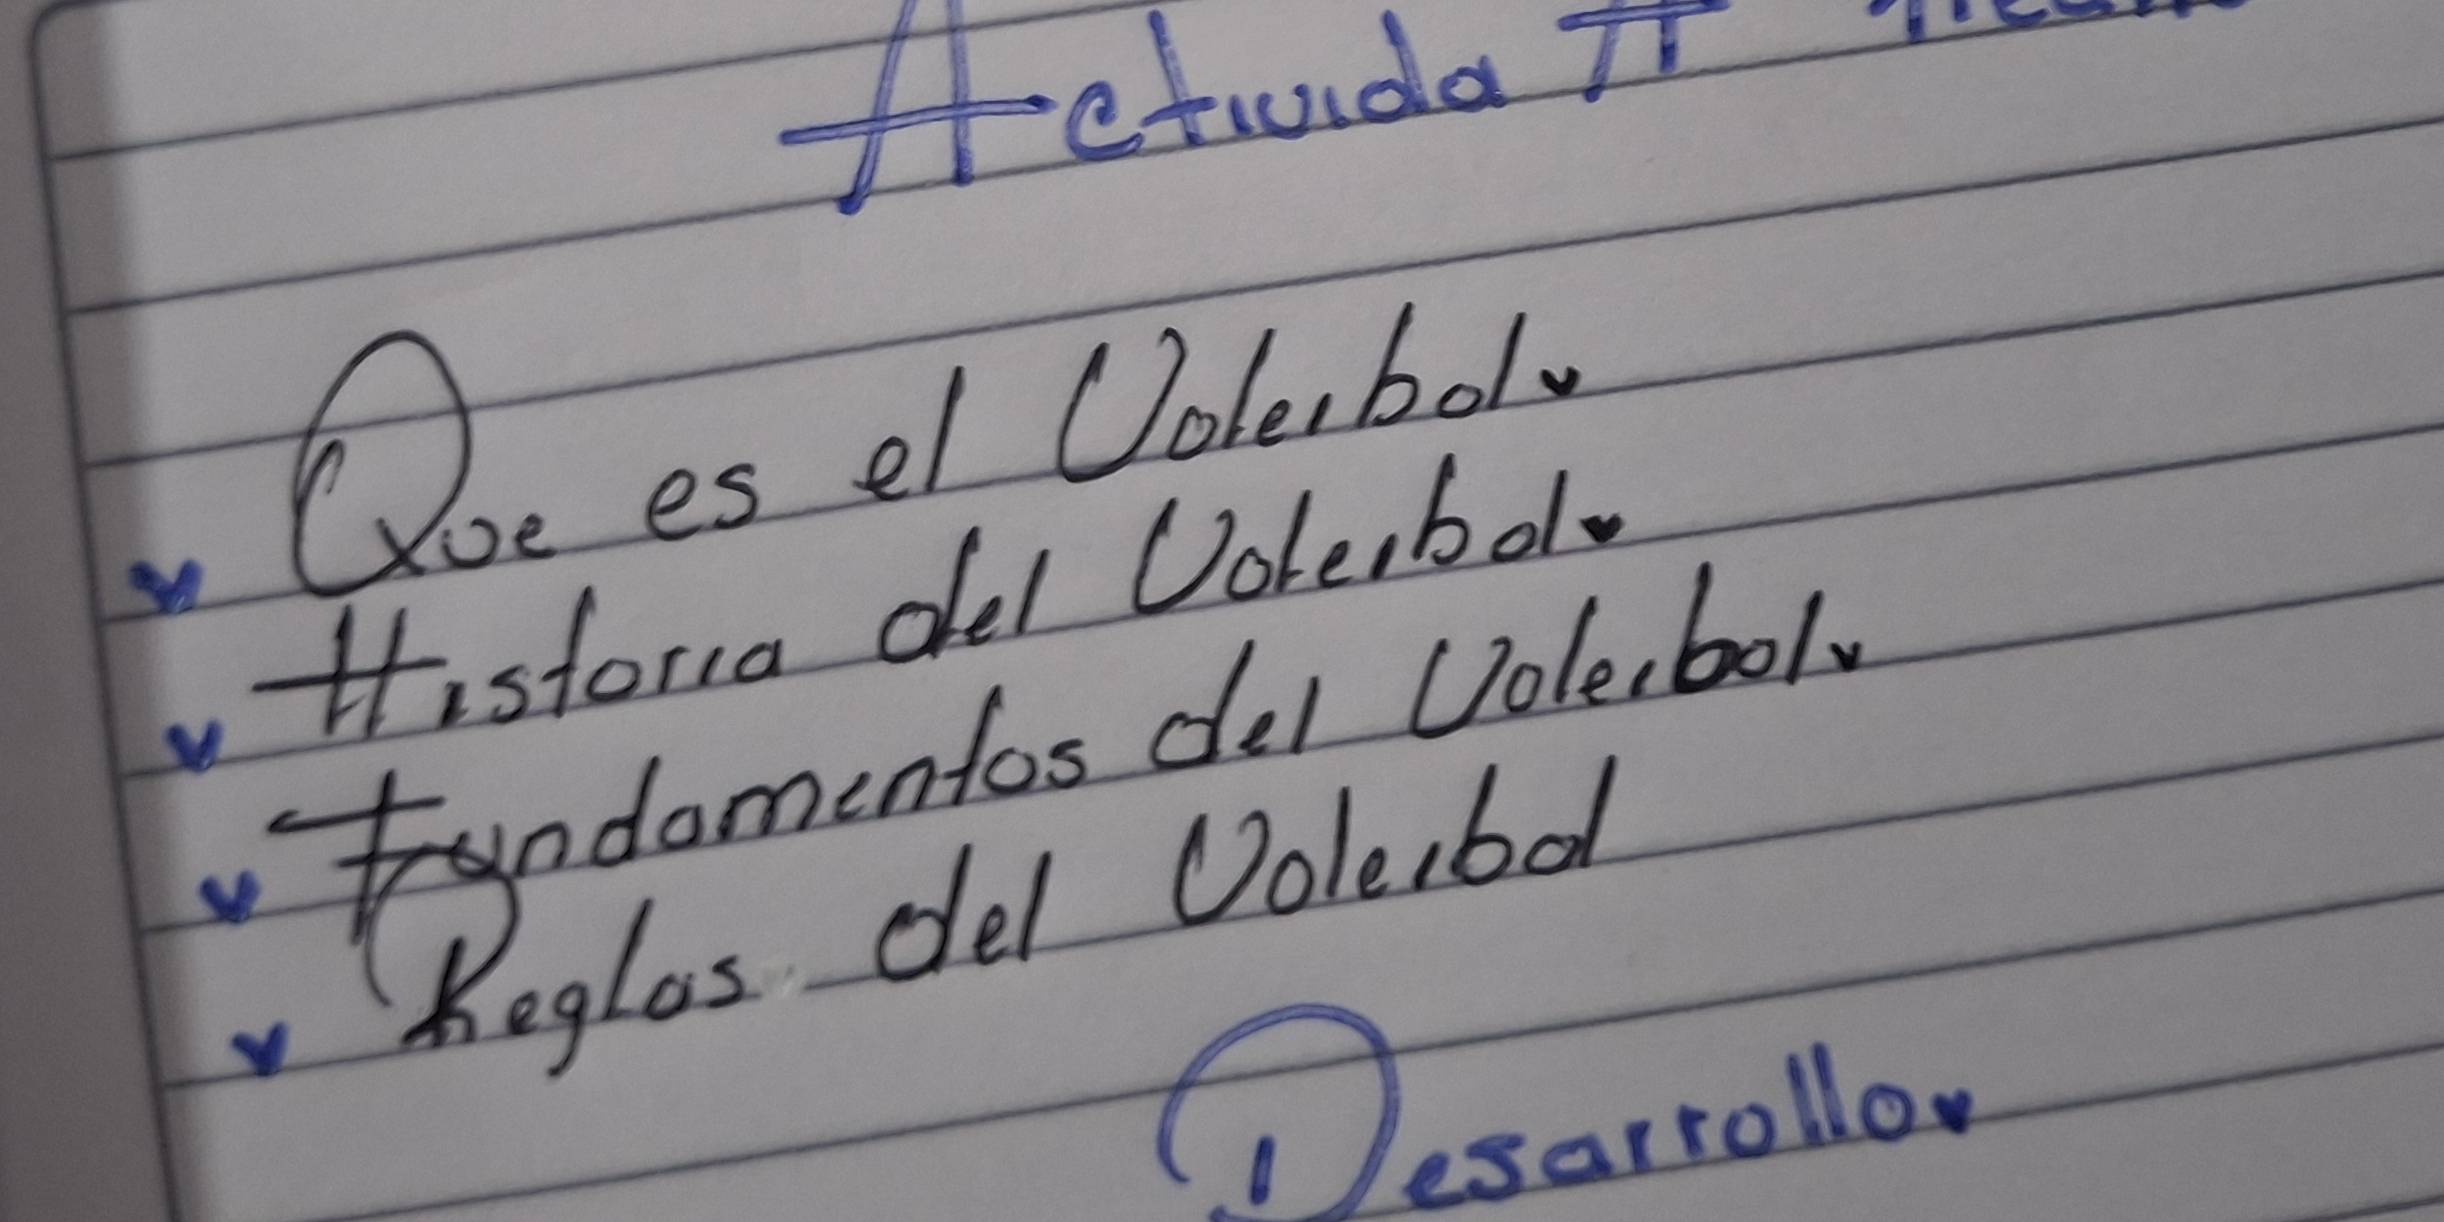 Activida II
Que es el Voleibol
Historia del Voleibol
Fundamentos del Voleibol
Reglas del Voleibol
Desarrollo